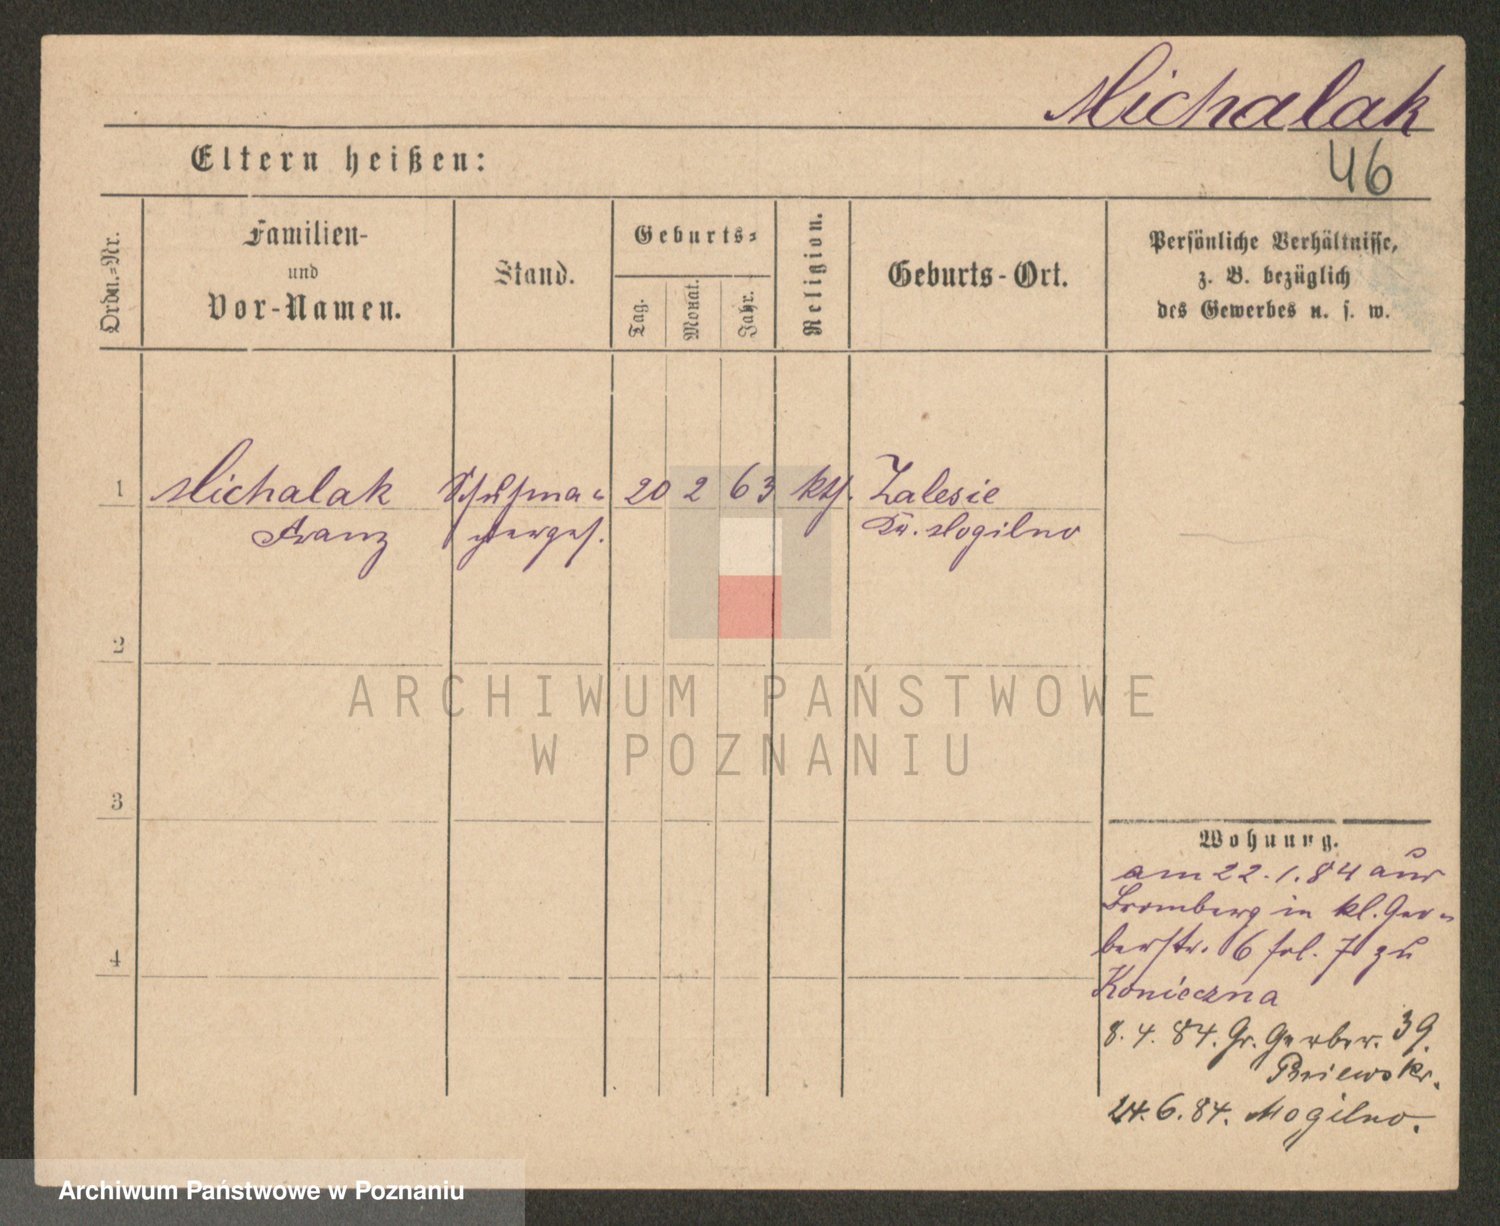 Michalak
46
Eltern heißen:
Ordn.=Nr.
Familien-
und
Vor-Namen.
Stand.
Geburts=
Tag.
Monat.
Jahr.
Religion.
Geburts-Ort.
Persönliche Verhältnisse,
z. B. bezüglich
des Gewerbes u. s. w.
1 Michalak Schuhma= 20 2 63 kth. Zalesie
Franz cherges. Kr. Mogilno
2
3
4
ARCHIWUM PAŃSTWOWE
W POZNANIU
Wohnung.
am 22.1.84 aus
Bromberg in kl. Ger=
berstr. 6 fol. 7 zu
Konieczna
8.4.84. Gr. Gerber. 39.
24.6.84. Mogilno.
Archiwum Państwowe w Poznaniu